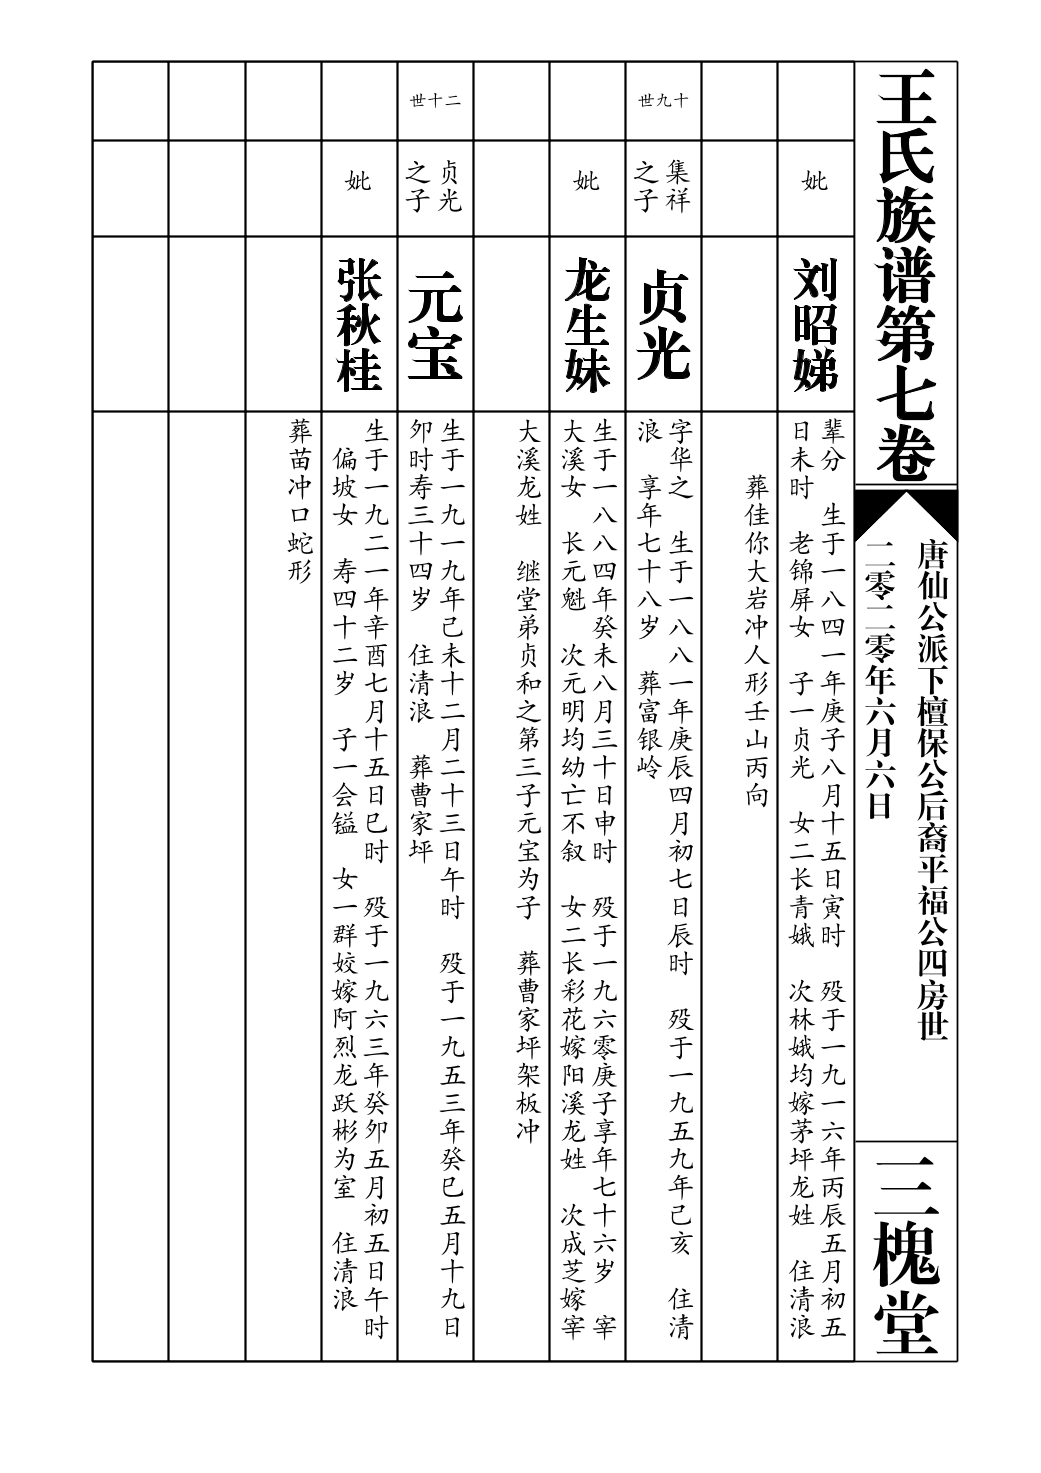 王氏族谱第七卷
唐仙公派下檀保公后裔平福公四房世
二零二零年六月六日
三槐堂
妣
刘昭娣
辈分　生于一八四一年庚子八月十五日寅时　殁于一九一六年丙辰五月初五
日未时　老锦屏女　子一贞光　女二长青娥　次林娥均嫁茅坪龙姓　住清浪
葬佳你大岩冲人形壬山丙向
十九世
集祥
之子
贞光
字华之　生于一八八一年庚辰四月初七日辰时　殁于一九五九年己亥　住清
浪　享年七十八岁　葬富银岭
妣
龙生妹
生于一八八四年癸未八月三十日申时　殁于一九六零庚子享年七十六岁　宰
大溪女　长元魁　次元明均幼亡不叙　女二长彩花嫁阳溪龙姓　次成芝嫁宰
大溪龙姓　继堂弟贞和之第三子元宝为子　葬曹家坪架板冲
二十世
贞光
之子
元宝
生于一九一九年己未十二月二十三日午时　殁于一九五三年癸巳五月十九日
卯时寿三十四岁　住清浪　葬曹家坪
妣
张秋桂
生于一九二一年辛酉七月十五日巳时　殁于一九六三年癸卯五月初五日午时
偏坡女　寿四十二岁　子一会镒　女一群姣嫁阿烈龙跃彬为室　住清浪
葬苗冲口蛇形